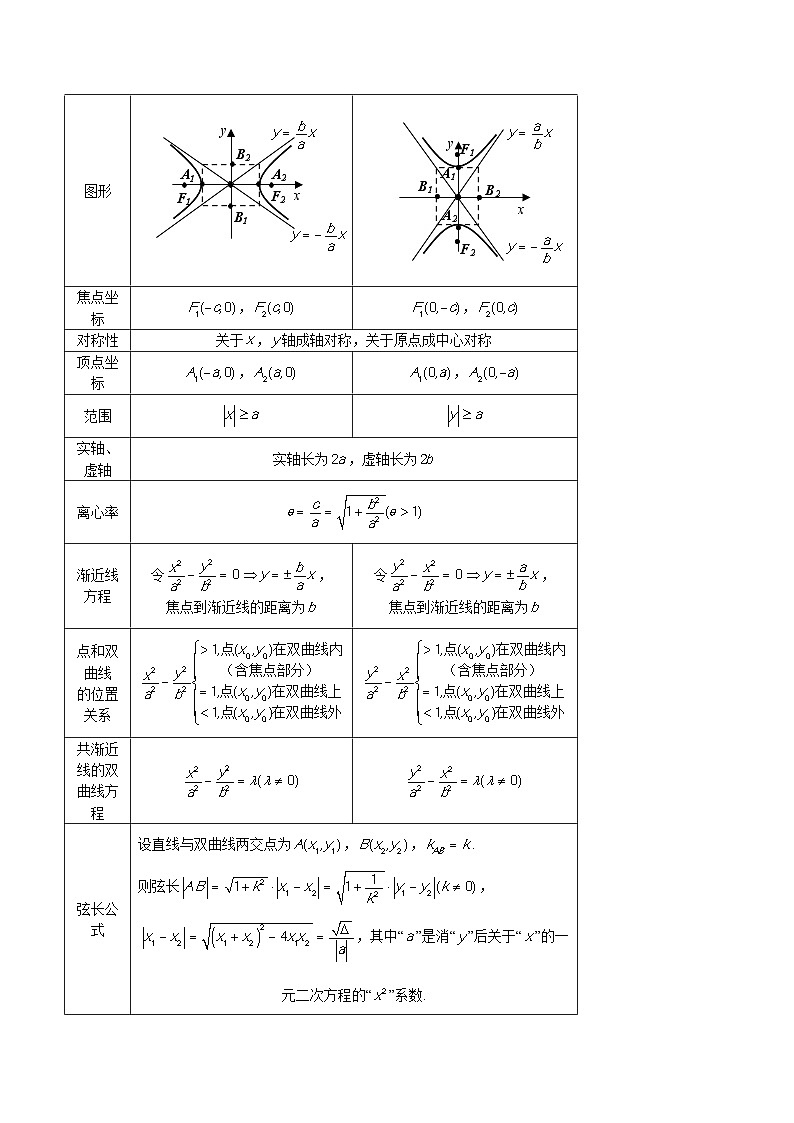 图形
y
y = b/a x
B2
A1
A2
F1
F2
x
B1
y = −b/a x
y
F1
y = a/b x
A1
B1
B2
x
A2
F2
y = −a/b x
焦点坐
标
F₁(−c,0)，F₂(c,0)
F₁(0,−c)，F₂(0,c)
对称性
关于x，y轴成轴对称，关于原点成中心对称
顶点坐
标
A₁(−a,0)，A₂(a,0)
A₁(0,a)，A₂(0,−a)
范围
|x| ≥ a
|y| ≥ a
实轴、
虚轴
实轴长为2a，虚轴长为2b
离心率
e = c/a = √(1 + b²/a²) (e > 1)
渐近线
方程
令 x²/a² − y²/b² = 0 ⇒ y = ± b/a x，
焦点到渐近线的距离为b
令 y²/a² − x²/b² = 0 ⇒ y = ± a/b x，
焦点到渐近线的距离为b
点和双
曲线
的位置
关系
x²/a² − y²/b² { > 1,点(x₀,y₀)在双曲线内
（含焦点部分）
= 1,点(x₀,y₀)在双曲线上
< 1,点(x₀,y₀)在双曲线外
y²/a² − x²/b² { > 1,点(x₀,y₀)在双曲线内
（含焦点部分）
= 1,点(x₀,y₀)在双曲线上
< 1,点(x₀,y₀)在双曲线外
共渐近
线的双
曲线方
程
x²/a² − y²/b² = λ(λ ≠ 0)
y²/a² − x²/b² = λ(λ ≠ 0)
弦长公
式
设直线与双曲线两交点为A(x₁,y₁)，B(x₂,y₂)，k_AB = k.
则弦长|AB| = √(1 + k²) · |x₁ − x₂| = √(1 + 1/k²) · |y₁ − y₂|(k ≠ 0)，
|x₁ − x₂| = √((x₁ + x₂)² − 4x₁x₂) = √Δ/|a|，其中“a”是消“y”后关于“x”的一
元二次方程的“x²”系数.